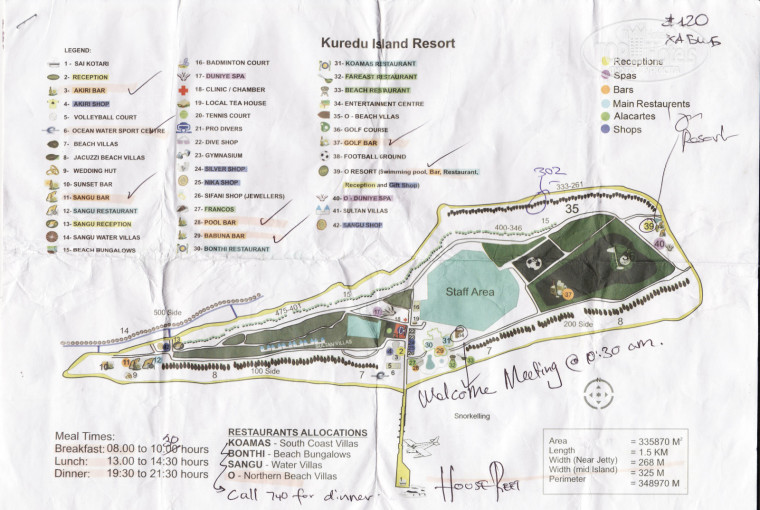 Kuredu Island Resort
#120
LEGEND:
1 - SAI KOTARI
2 - RECEPTION
3 - AKIRI BAR
4 - AKIRI SHOP
5 - VOLLEYBALL COURT
6 - OCEAN WATER SPORT CENTRE
7 - BEACH VILLAS
8 - JACUZZI BEACH VILLAS
9 - WEDDING HUT
10 - SUNSET BAR
11 - SANGU BAR
12 - SANGU RESTAURANT
13 - SANGU RECEPTION
14 - SANGU WATER VILLAS
15 - BEACH BUNGALOWS
16 - BADMINTON COURT
17 - DUNIYE SPA
18 - CLINIC / CHAMBER
19 - LOCAL TEA HOUSE
20 - TENNIS COURT
21 - PRO DIVERS
22 - DIVE SHOP
23 - GYMNASIUM
24 - SILVER SHOP
25 - NIKA SHOP
26 - SIFANI SHOP (JEWELLERS)
27 - FRANCOS
28 - POOL BAR
29 - BABUNA BAR
30 - BONTHI RESTAURANT
31 - KOAMAS RESTAURANT
32 - FAREASY RESTAURANT
33 - BEACH RESTAURANT
34 - ENTERTAINMENT CENTRE
35 - O - BEACH VILLAS
36 - GOLF COURSE
37 - GOLF BAR
38 - FOOTBALL GROUND
39 - O RESORT (Swimming pool, Bar, Restaurant,
Reception and Gift Shop)
40 - O - DUNIYE SPA
41 - SULTAN VILLAS
42 - SANGU SHOP
Receptions
Spas
Bars
Main Restaurents
Alacartes
Shops
Resort
302
333-261
35
15
400-346
39
40
Staff Area
37
475-401
15
500 Side
14
200 Side
8
7
100 Side
8
7
Welcome Meeting @ 10:30 am.
Snorkelling
Meal Times:
30
Breakfast: 08.00 to 10:00 hours
Lunch: 13.00 to 14:30 hours
Dinner: 19:30 to 21:30 hours
RESTAURANTS ALLOCATIONS
KOAMAS - South Coast Villas
BONTHI - Beach Bungalows
SANGU - Water Villas
O - Northern Beach Villas
Call 740 for dinner.
House Reef
Area = 335870 M²
Length = 1.5 KM
Width (Near Jetty) = 268 M
Width (mid Island) = 325 M
Perimeter = 348970 M